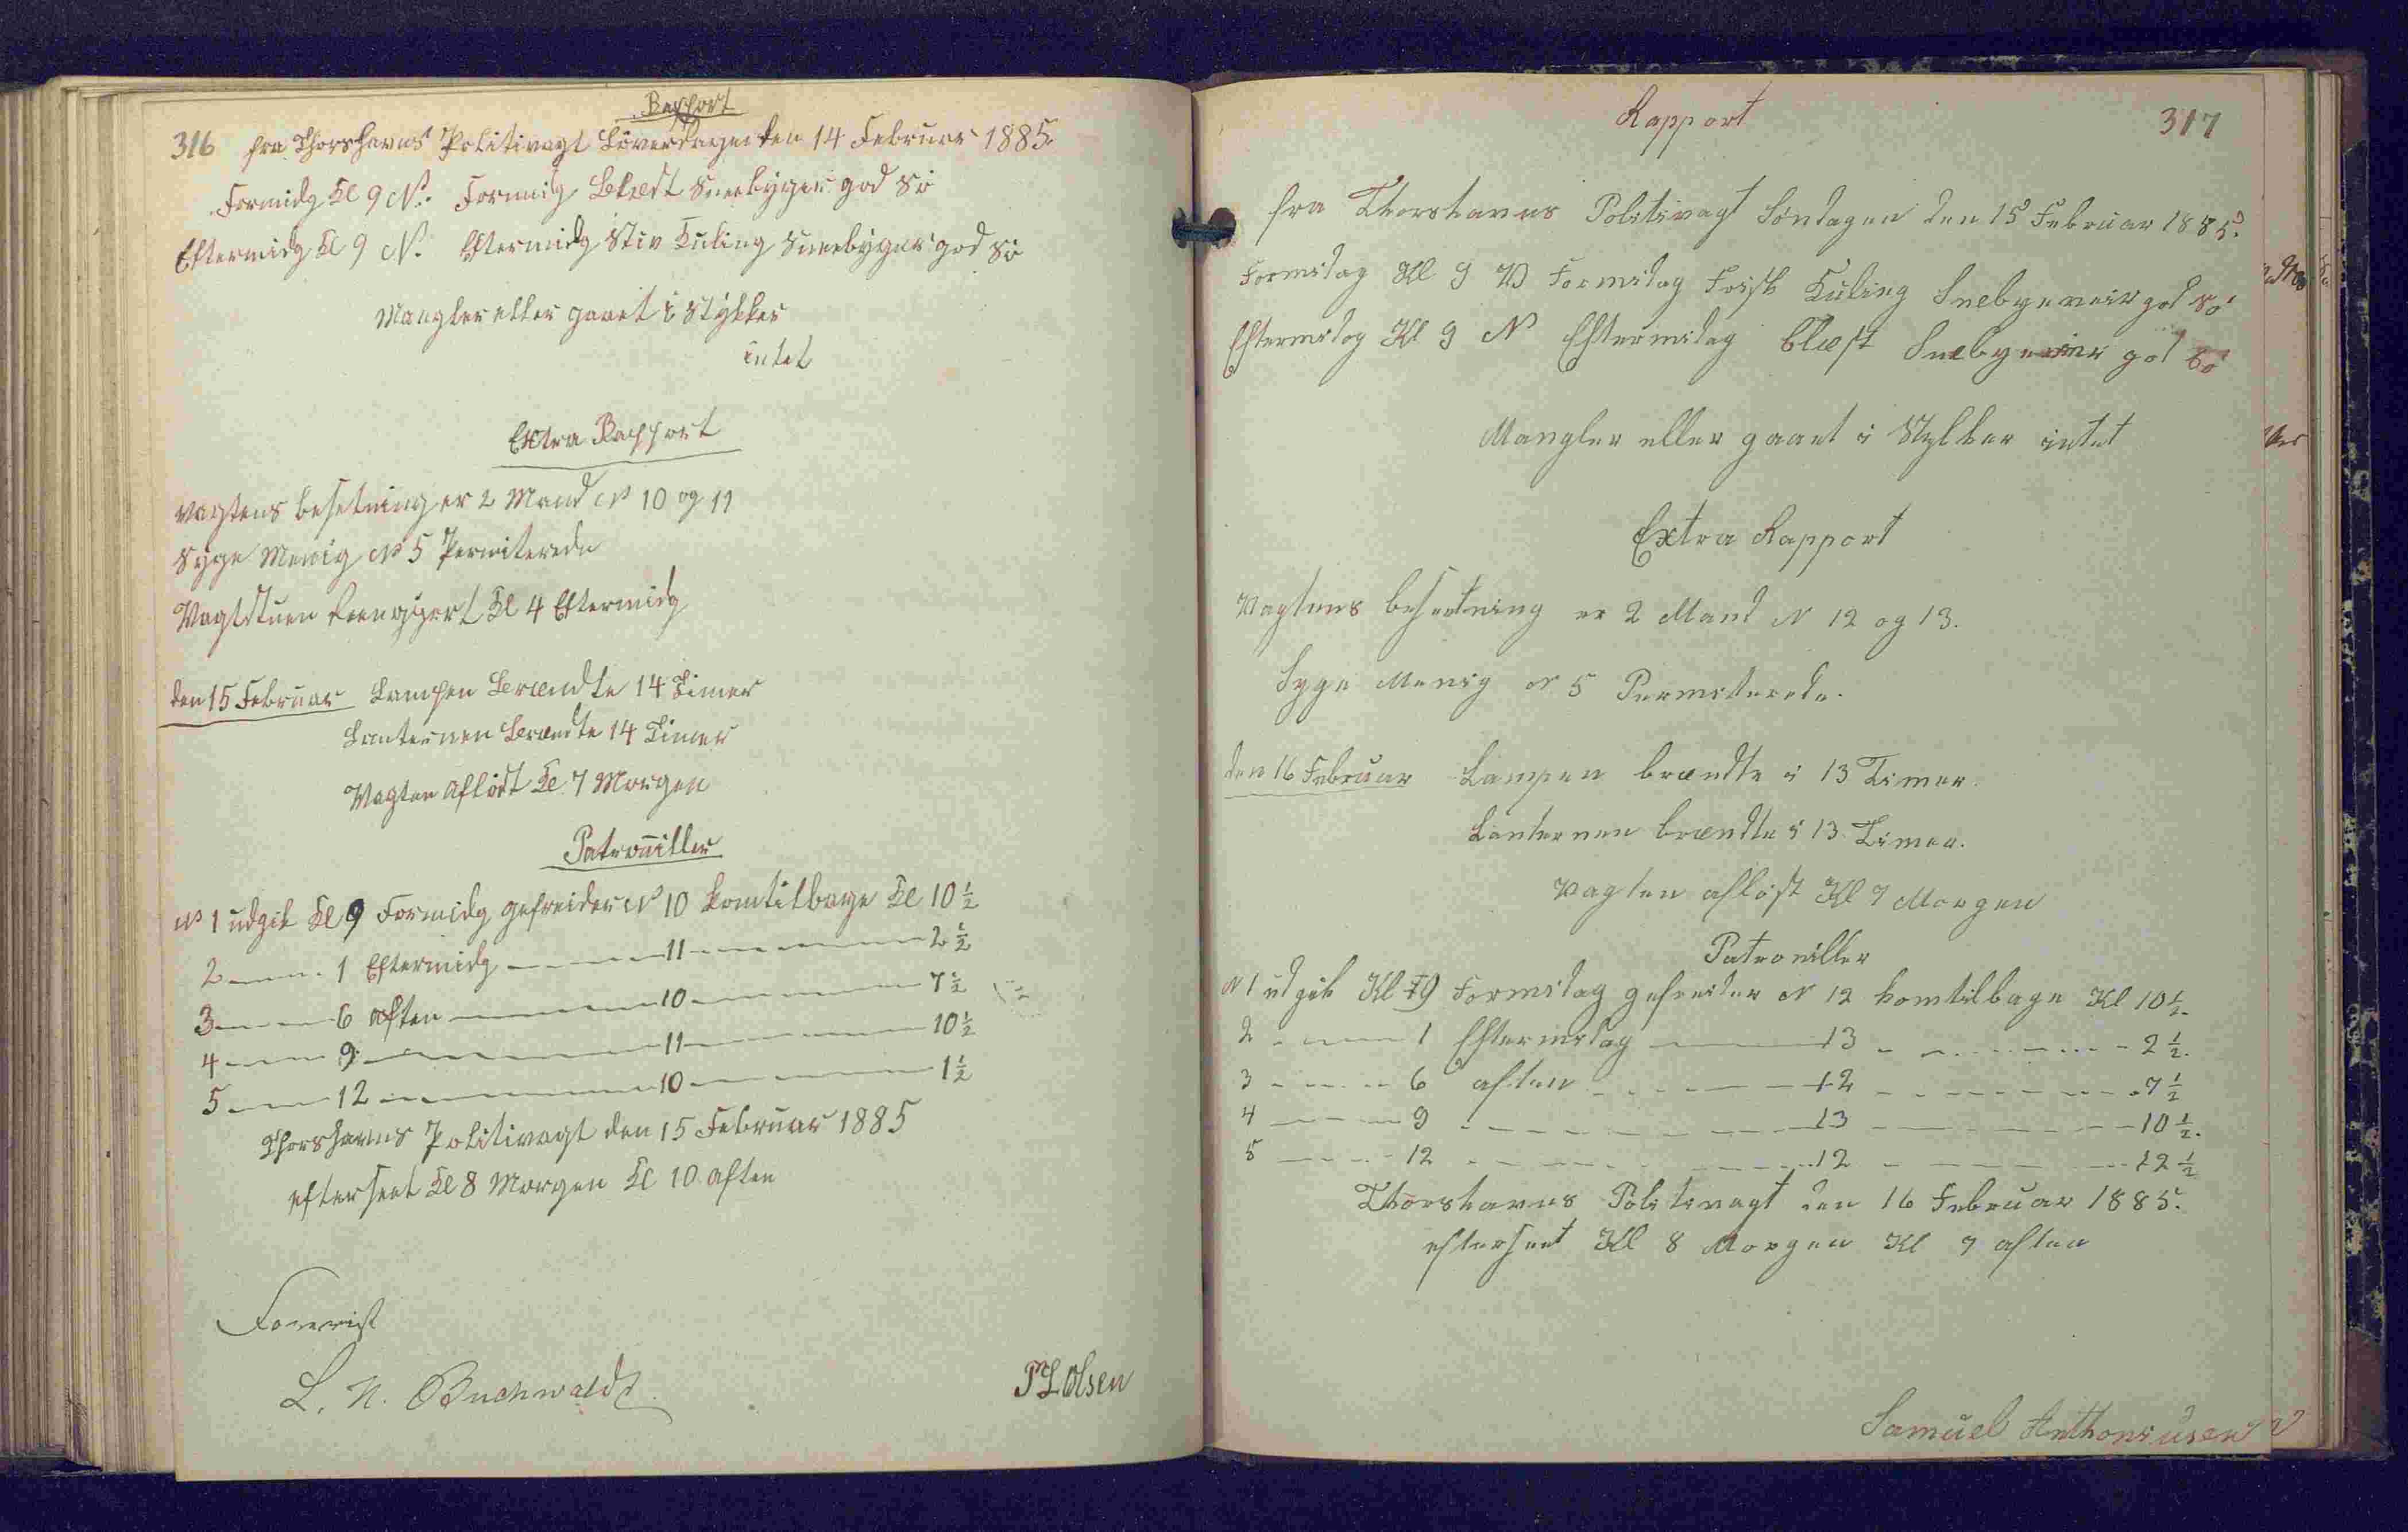 Rapport
316 fra Thorshavns Politivagt Löverdagen den 14 Februar 1885.
Formidg Kl 9 N. Formidg Blæst Sneebyger god Sö
Eftermidg Kl 9 N. Eftermidg Stiv Kuling Sneebyger god Sö
Mangler eller gaaet i Stykker
intet
Extra Rapport
Vagtens besetning er 2 Mand No 10 og 11
Syge Menig No 5 Permiterede
Vagtstuen Reengjort Kl 4 Eftermidg
den 15 Februar Lampen Brændte 14 Timer
Lanternen Brændte 14 Timer
Vagten Aflöst Kl 7 Morgen
Patrouiller
No 1 udgik Kl 9 Formidg gefreider No 10 komtilbage Kl 10 1/2
2 — 1 Eftermidg — 11 — 2 1/2
3 — 6 Aften — 10 — 7 1/2
4 — 9 — 11 — 10 1/2
5 — 12 — 10 — 1 1/2
Thorshavns Politivagt den 15 Februar 1885
efterseet Kl 8 Morgen Kl 10 Aften
Forevist
L. N. Buchwaldt
P L Olsen
Rapport
317
fra Thorshavns Politivagt Söndagen den 15 Februar 1885.
Formidag Kl 9 Formidag Frisk Kuling Sneebyeveir god Sö
Eftermidag Kl 9 N Eftermidag blæst Sneebyeveir god Sö
Mangler eller gaaet i Stykker intet
Extra Rapport
Vagtens besætning er 2 Mand N 12 og 13.
Syge Menig N 5 Permiterede.
den 16 Februar Lampen brændte i 13 Timer.
Lanternen brændte i 13 Timer.
Vagten aflöst Kl 7 Morgen
Patrouiller
N 1 udgik Kl 9 Formidag gefreider N 12 komtilbage Kl 10 1/2.
2 — 1 Eftermidag — 13 — 2 1/2.
3 — 6 aften — 12 — 7 1/2
4 — 9 — 13 — 10 1/2.
5 — 12 — 12 — 12 1/2
Thorshavns Politivagt den 16 Februar 1885.
efterseet Kl 8 Morgen Kl 7 aften
Samuel Anthoniusen